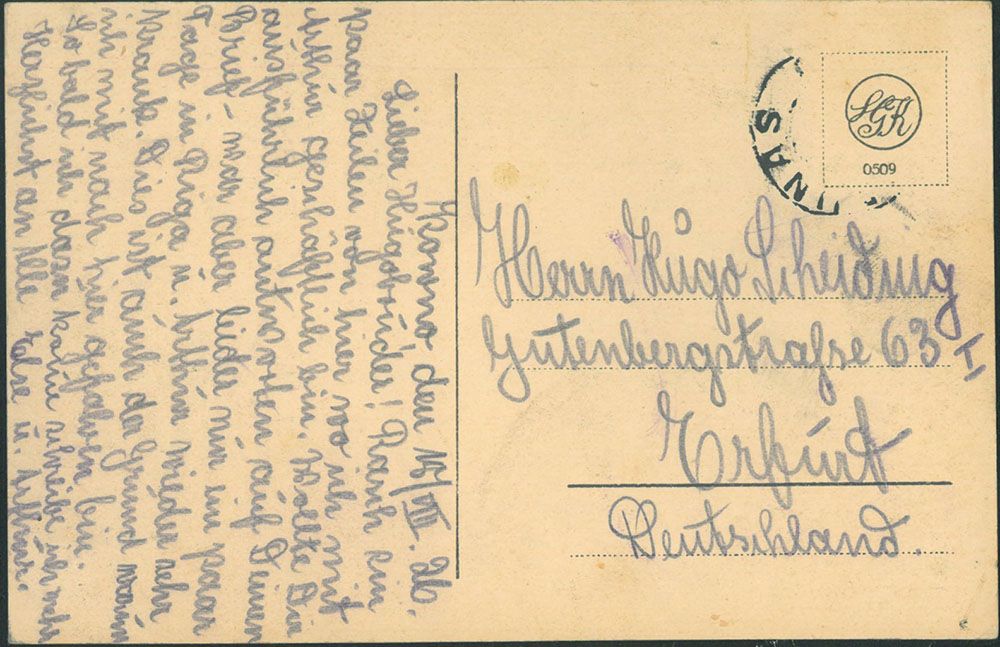 Kowno, den 15/VII. 26.
Lieber Hugobruder! Rasch ein
paar Zeilen von hier wo ich mit
Arthur geschäftlich bin. Wollte Dir
ausführlich antworten auf Deinen
Brief – war aber leider nur ein paar
Tage in Riga u. Arthur wieder sehr
krank. Dies ist auch der Grund warum
ich mit nach hier gefahren bin.
Sobald ich dazu kam schreibe ich mehr
Herzlichst an Alle Else u. Arthur.
UNAS
HGK
0509
Herrn Hugo Scheiding
Gutenbergstrasse 63 I
Erfurt
Deutschland.